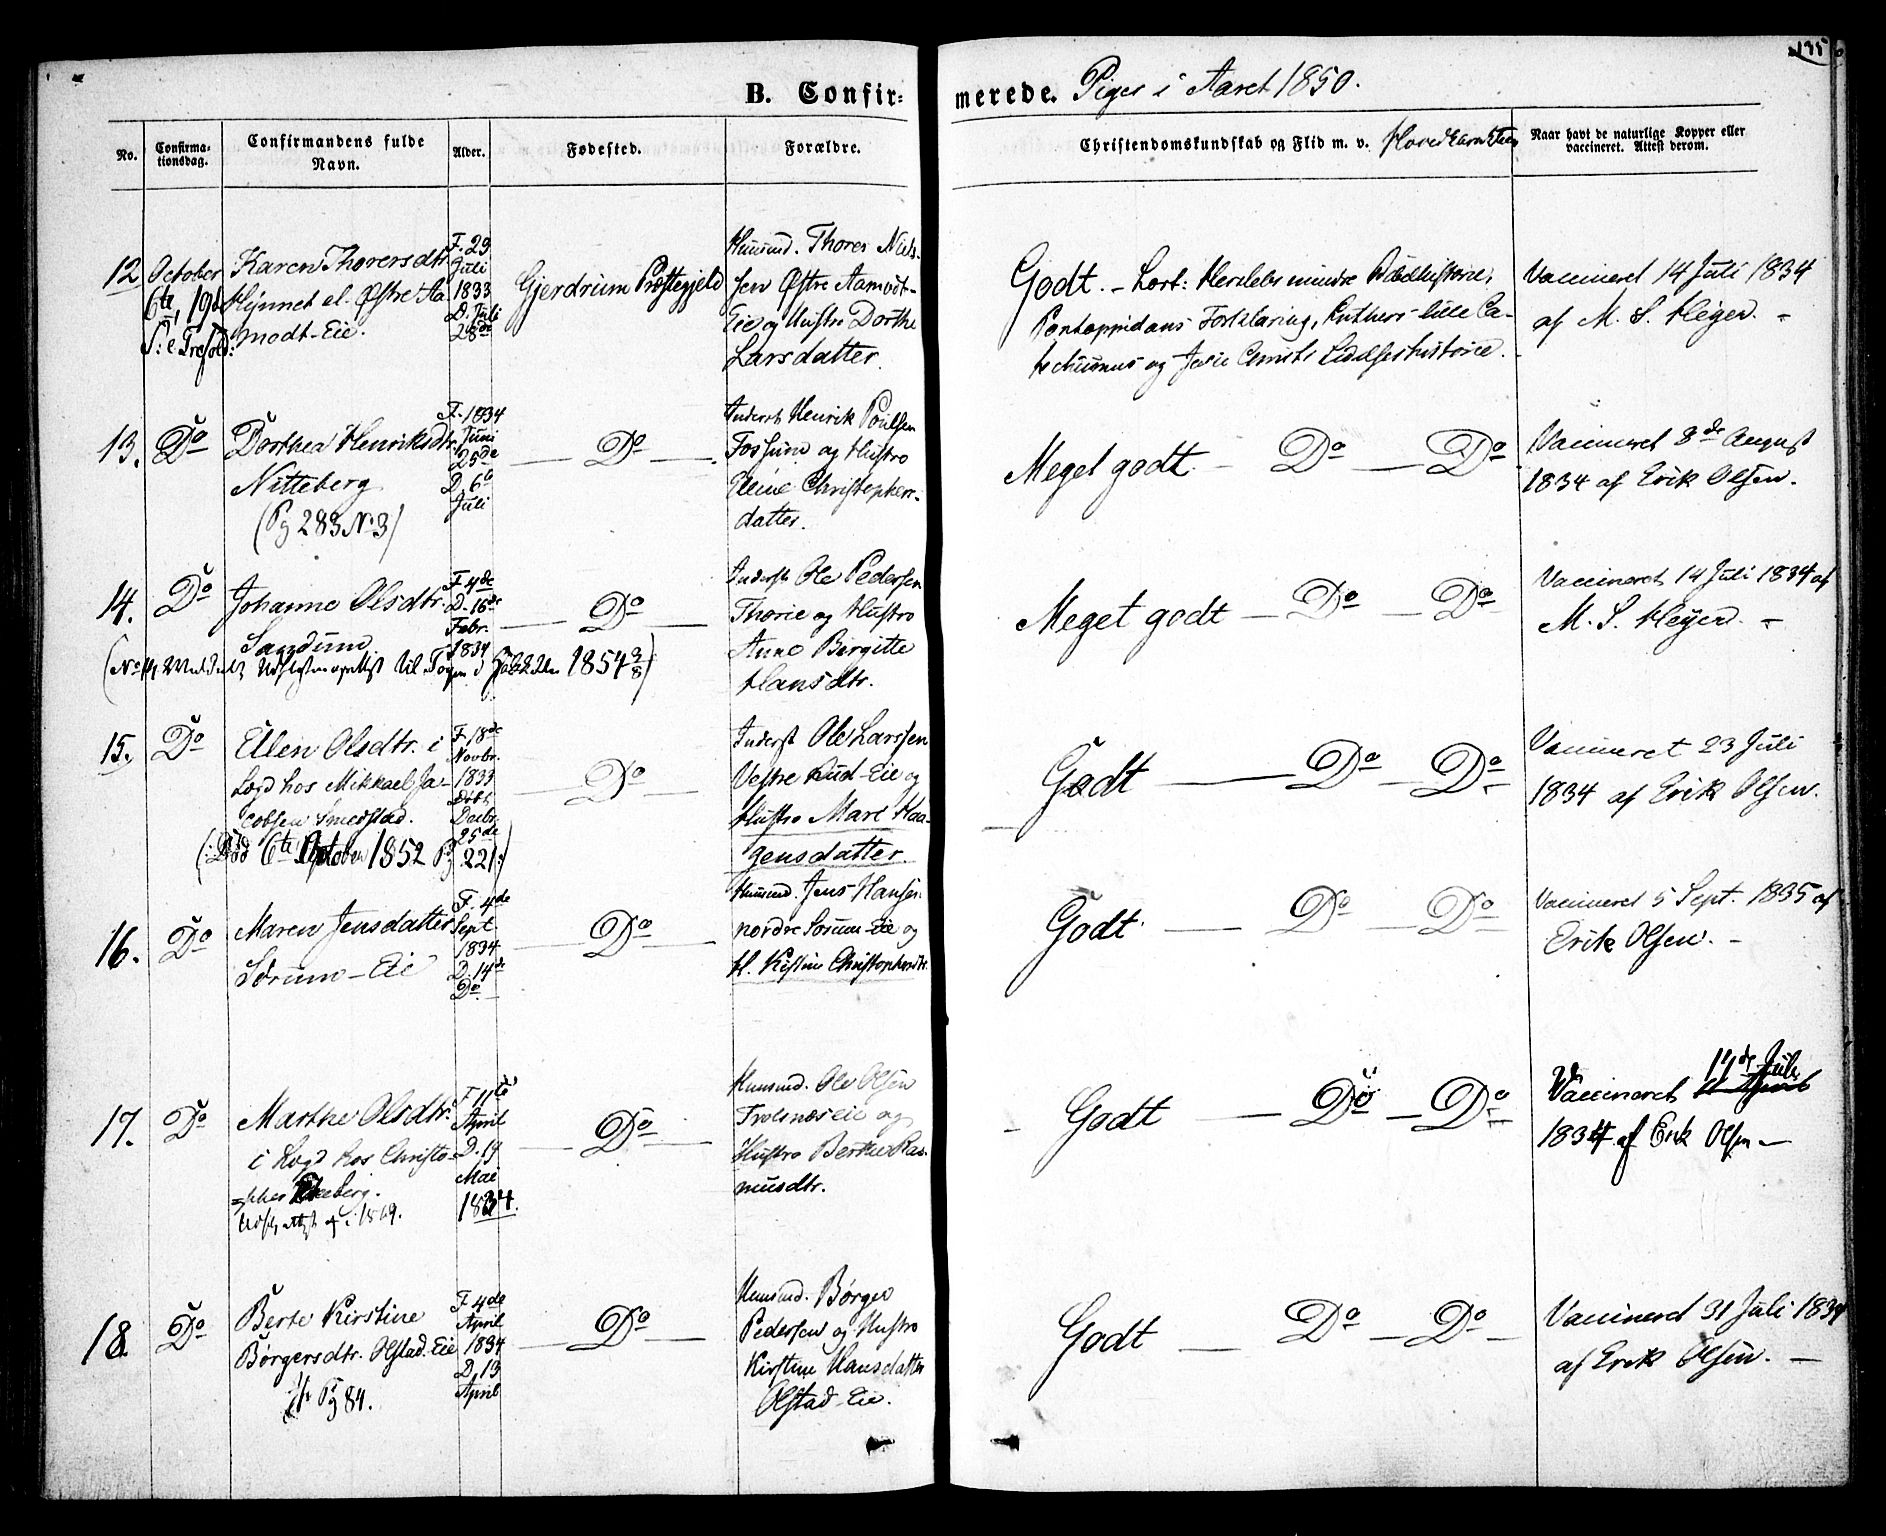 135
B. Confir-
merede. Piger i Aaret 1850.
No.
Confirma-
tionsdag.
Confirmandens fulde
Navn.
Alder.
Fødested.
Forældre.
Christendomskundskab og Flid m. v.
Naar havt de naturlige Kopper eller
vaccineret. Attest derom.
12
October
6te, 19d
S: e. Trefold:
Karen Thorersdtr.
Hynnet el. Østre Aa
modt-Eie.
F. 29
Juli
1833
D. Juli
28de
Gjerdrum Præstegjeld
Huusmd. Thorer Niels-
sen Østre Aamodt-
Eie og Hustro Dorthe
Larsdatter.
Godt. - Lært: Herslebs mindre Bibelhistorie,
Pontoppidans Forklaring, Luthers lille Ca-
techismus og Jesu Christi Lidelseshistorie.
Vaccineret 14 Juli 1834
af M. S. Heyer. -
13.
Do
Dorthea Henriksdtr.
Nitteberg
(Pg 283 No 3)
F. 1834
Juni
25de
D. 6te
Juli
Do
Inderst Henrik Poulsen
Fossum og Hustro
Eleine Christopher-
datter.
Meget godt - Do - Do
Vaccineret 8de August
1834 af Erik Olsen.
14.
Do
Johanne Olsdtr.
F. 4de
D. 16de
Febr.
1834
Do
Inderst Ole Pedersen
Thorie og Hustro
Anne Birgitte
Hansdtr.
Meget godt - Do - Do
Vaccineret 14 Juli 1834 af
M. S. Heyer. -
15.
Do
Ellen Olsdtr. i
Lægd hos Mikkael Ja-
cobsen Smedstad.
(: Død 6te October 1852 Pg 221:)
F. 18de
Novbr.
1833
Døbt
Decbr.
25de
Do
Inderst Ole Larssen
Vestre Rud-Eie og
Hustro Mare Haa-
gensdatter.
Godt - Do - Do
Vaccineret 23 Juli
1834 af Erik Olsen.
16.
Do
Maren Jensdatter
Sørum-Eie
F. 4de
Sept.
1834
D. 14de
Do
Do
Huusmd. Jens Hansen
nordre Sørum-Eie og
H. Kistine Christophersdtr.
Godt - Do - Do
Vaccineret 5 Sept. 1835 af
Erik Olsen. -
17.
Do
Marthe Olsdtr.
i Lægd hos Christo-
F 11te
April
D. 19
Mai
1834.
Do
Huusmd. Ole Olsen
Trolsnæs eie og
Hustro Berthe Ras-
musdtr.
Godt - Do - Do
Vaccineret 14de Juli
1834 af Erik Olsen -
18.
Do
Berte Kirstine
Børgersdtr. Olstad-Eie
Pg 84.
F. 4de
April
1834
D. 13
April
Do
Huusmd. Børger
Pedersen og Hustro
Kirstine Hansdatter
Olstad-Eie.
Godt - Do - Do -
Vaccineret 31 Juli 1834
af Erik Olsen. -